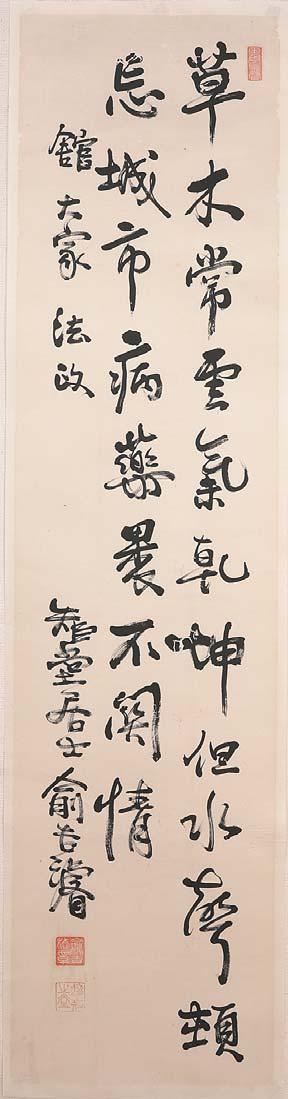 草木常雲氣乾坤但水聲頓
忘城市病藥裹不關情
舘大家法政
矩堂居士俞吉濬